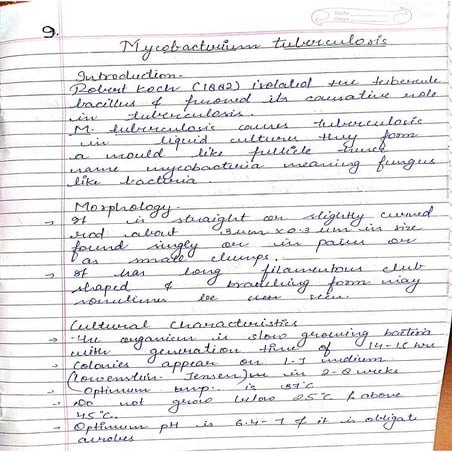 9.
Mycobacterium tuberculosis
Introduction-
Robert Koch (1882) isolated the tubercule
bacillus & proved its causative role
in tuberculosis.
M. tuberculosis causes tuberculosis
in liquid cultures they form
a mould like pellicle hence
name mycobacteria meaning fungus
like bacteria.
Morphology-
→ It is straight or slightly curved
rod about 3um x 0.3 um in size
found singly or in pairs or
as small clumps.
→ It has long filamentous club
shaped & branching form may
sometimes be seen.
Cultural Characteristics
→ The organism is slow growing bacteria
with generation time of 14-15 hrs
→ Colonies appear on L-J medium
(Lowenstein Jensen) in 2-8 weeks
→ Optimum temp. is 37°C
→ Do not grow below 25°C & above
45°C.
→ Optimum pH is 6.4-7 & it is obligate
aerobes